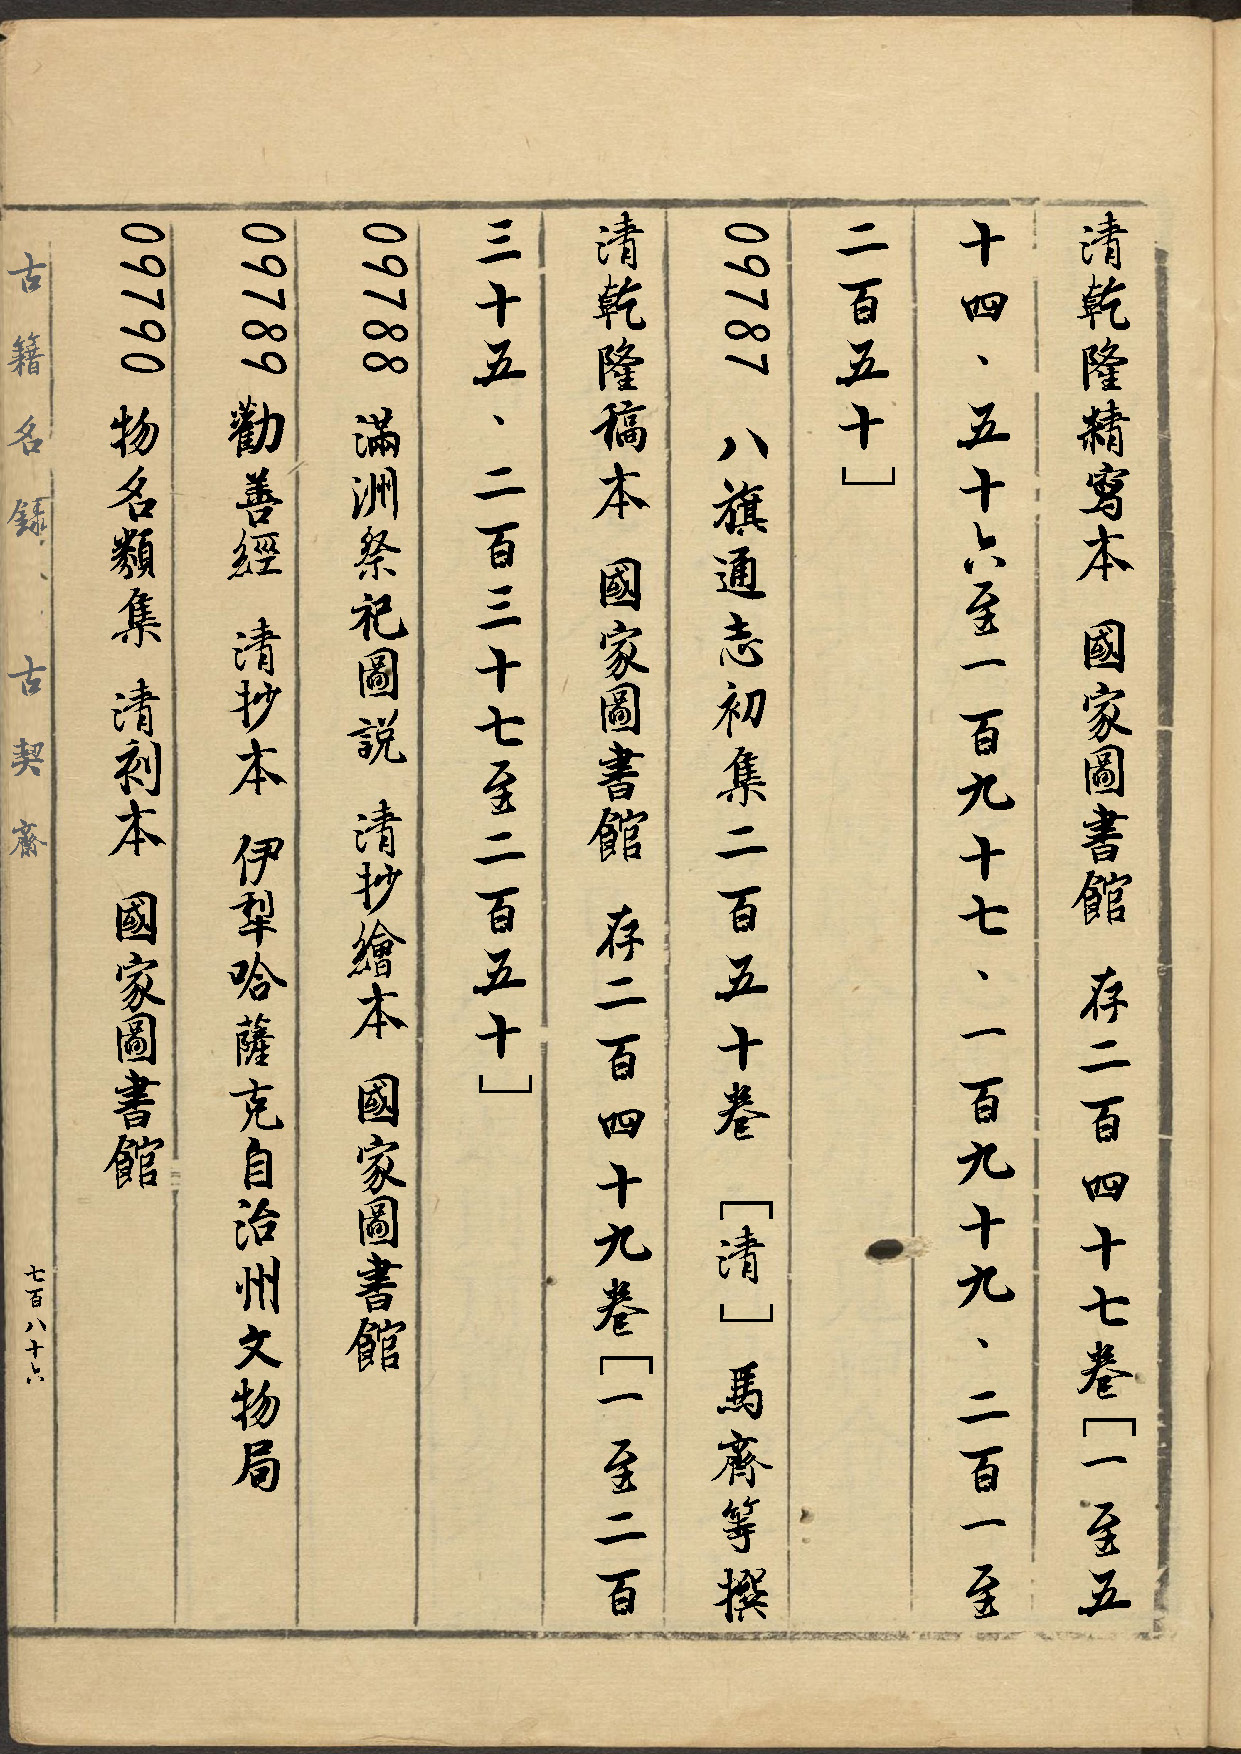 清乾隆精寫本 國家圖書館 存二百四十七卷[一至五
十四、五十六至一百九十七、一百九十九、二百一至
二百五十]
09787 八旗通志初集二百五十卷 [清] 馬齊等撰
清乾隆稿本 國家圖書館 存二百四十九卷[一至二百
三十五、二百三十七至二百五十]
09788 滿洲祭祀圖説 清抄繪本 國家圖書館
09789 勸善經 清抄本 伊犁哈薩克自治州文物局
09790 物名類集 清刻本 國家圖書館
古籍名錄、、古契齋
七百八十六